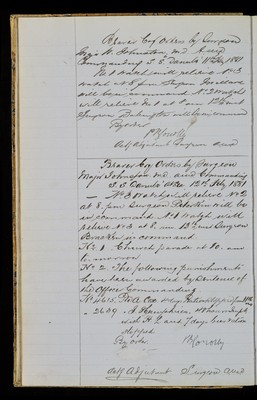 Bearer Coy Orders by Surgeon
Major W. Johnston, M.D. A.M.D
Commanding S.S. Danube 11th Feby 1881
No 1 Watch will relieve No 3
watch at 8 pm Surgeon
will be in command No 2 Watch
will relieve No 1 at 1 am 12th inst
Surgeon will be in command
By order
Actg Adjutant Surgeon A.M.D
Bearer Coy Orders by Surgeon
Major Johnston M.D. A.M.D Commanding
S.S. Danube At Sea 12th Feby 1881
No 3 Watch will relieve No 2
at 8. pm Surgeon will be
in command. No 1 Watch will
relieve No 3 at 1. am 13th inst Surgeon
in command
No 1. Church parade at 10. am
tomorrow
No 2. The following punishments
have been awarded by Sentence of
the Officer Commanding
No 4615. Pte A. Cox
2609. Humphries. 48 hours
with H. L. and 7 days
stopped
By order
Actg Adjutant Surgeon A.M.D